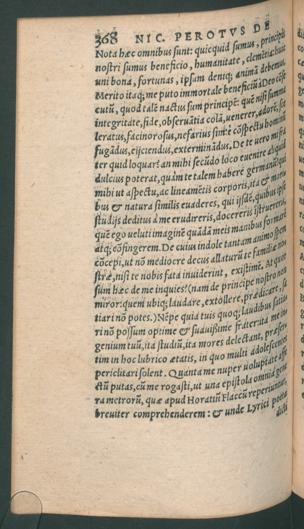 368 NIC. PEROTVS DE
Nota hæc omnibus sunt: quicquid sumus, principis
nostri sumus beneficio, humanitate, clemētia: hinc
uni bona, fortunas, ipsum deniq; animū debemus.
Merito itaq; me puto immortale beneficiū à Deo cōse
cutū, quod talē nactus sum principē: quē nisi summa
integritate, fide, obseruātia colā, uenerer, adorē, sce
leratus, facinorosus, nefarius sim: è cōspectu hominū
fugādus, eijciendus, exterminādus. De te uero mi fra
ter quid loquar? an mihi secūdo loco euenire aliquid
dulcius poterat, quàm te talem habere germanū, qui
mihi ut aspectu, ac lineamētis corporis, ita & moribus
& natura similis euaderes, qui ijsdē, quibus ipse
studijs deditus à me erudireris, docereris, īstruereris,
quē ego ueluti imaginē quādā meis manibus formarē
atq; cōfingerem. De cuius indole tantam animo spem
cōcepi, ut nō mediocre decus allaturū te familiæ no
stræ, nisi te nobis fata inuiderint, existimē. At quor
sum hæc de me inquies? (nam de principe nostro non
miror: quem ubiq; laudare, extollere, prædicare, sa
tiari nō potes.) Nēpe quia tuis quoq; laudibus satia
ri nō possum optime & suauissime frater: ita me in
genium tuū, ita studiū, ita mores delectant, præser
tim in hoc lubrico ætatis, in quo multi adolescentes
periclitari solent. Quanta me nuper uoluptate affe
ctū putas, cū me rogasti, ut una epistola omnia gene
ra metrorū, quæ apud Horatiū Flaccū reperiuntur,
breuiter comprehenderem: & unde Lyrici poetæ
dicti